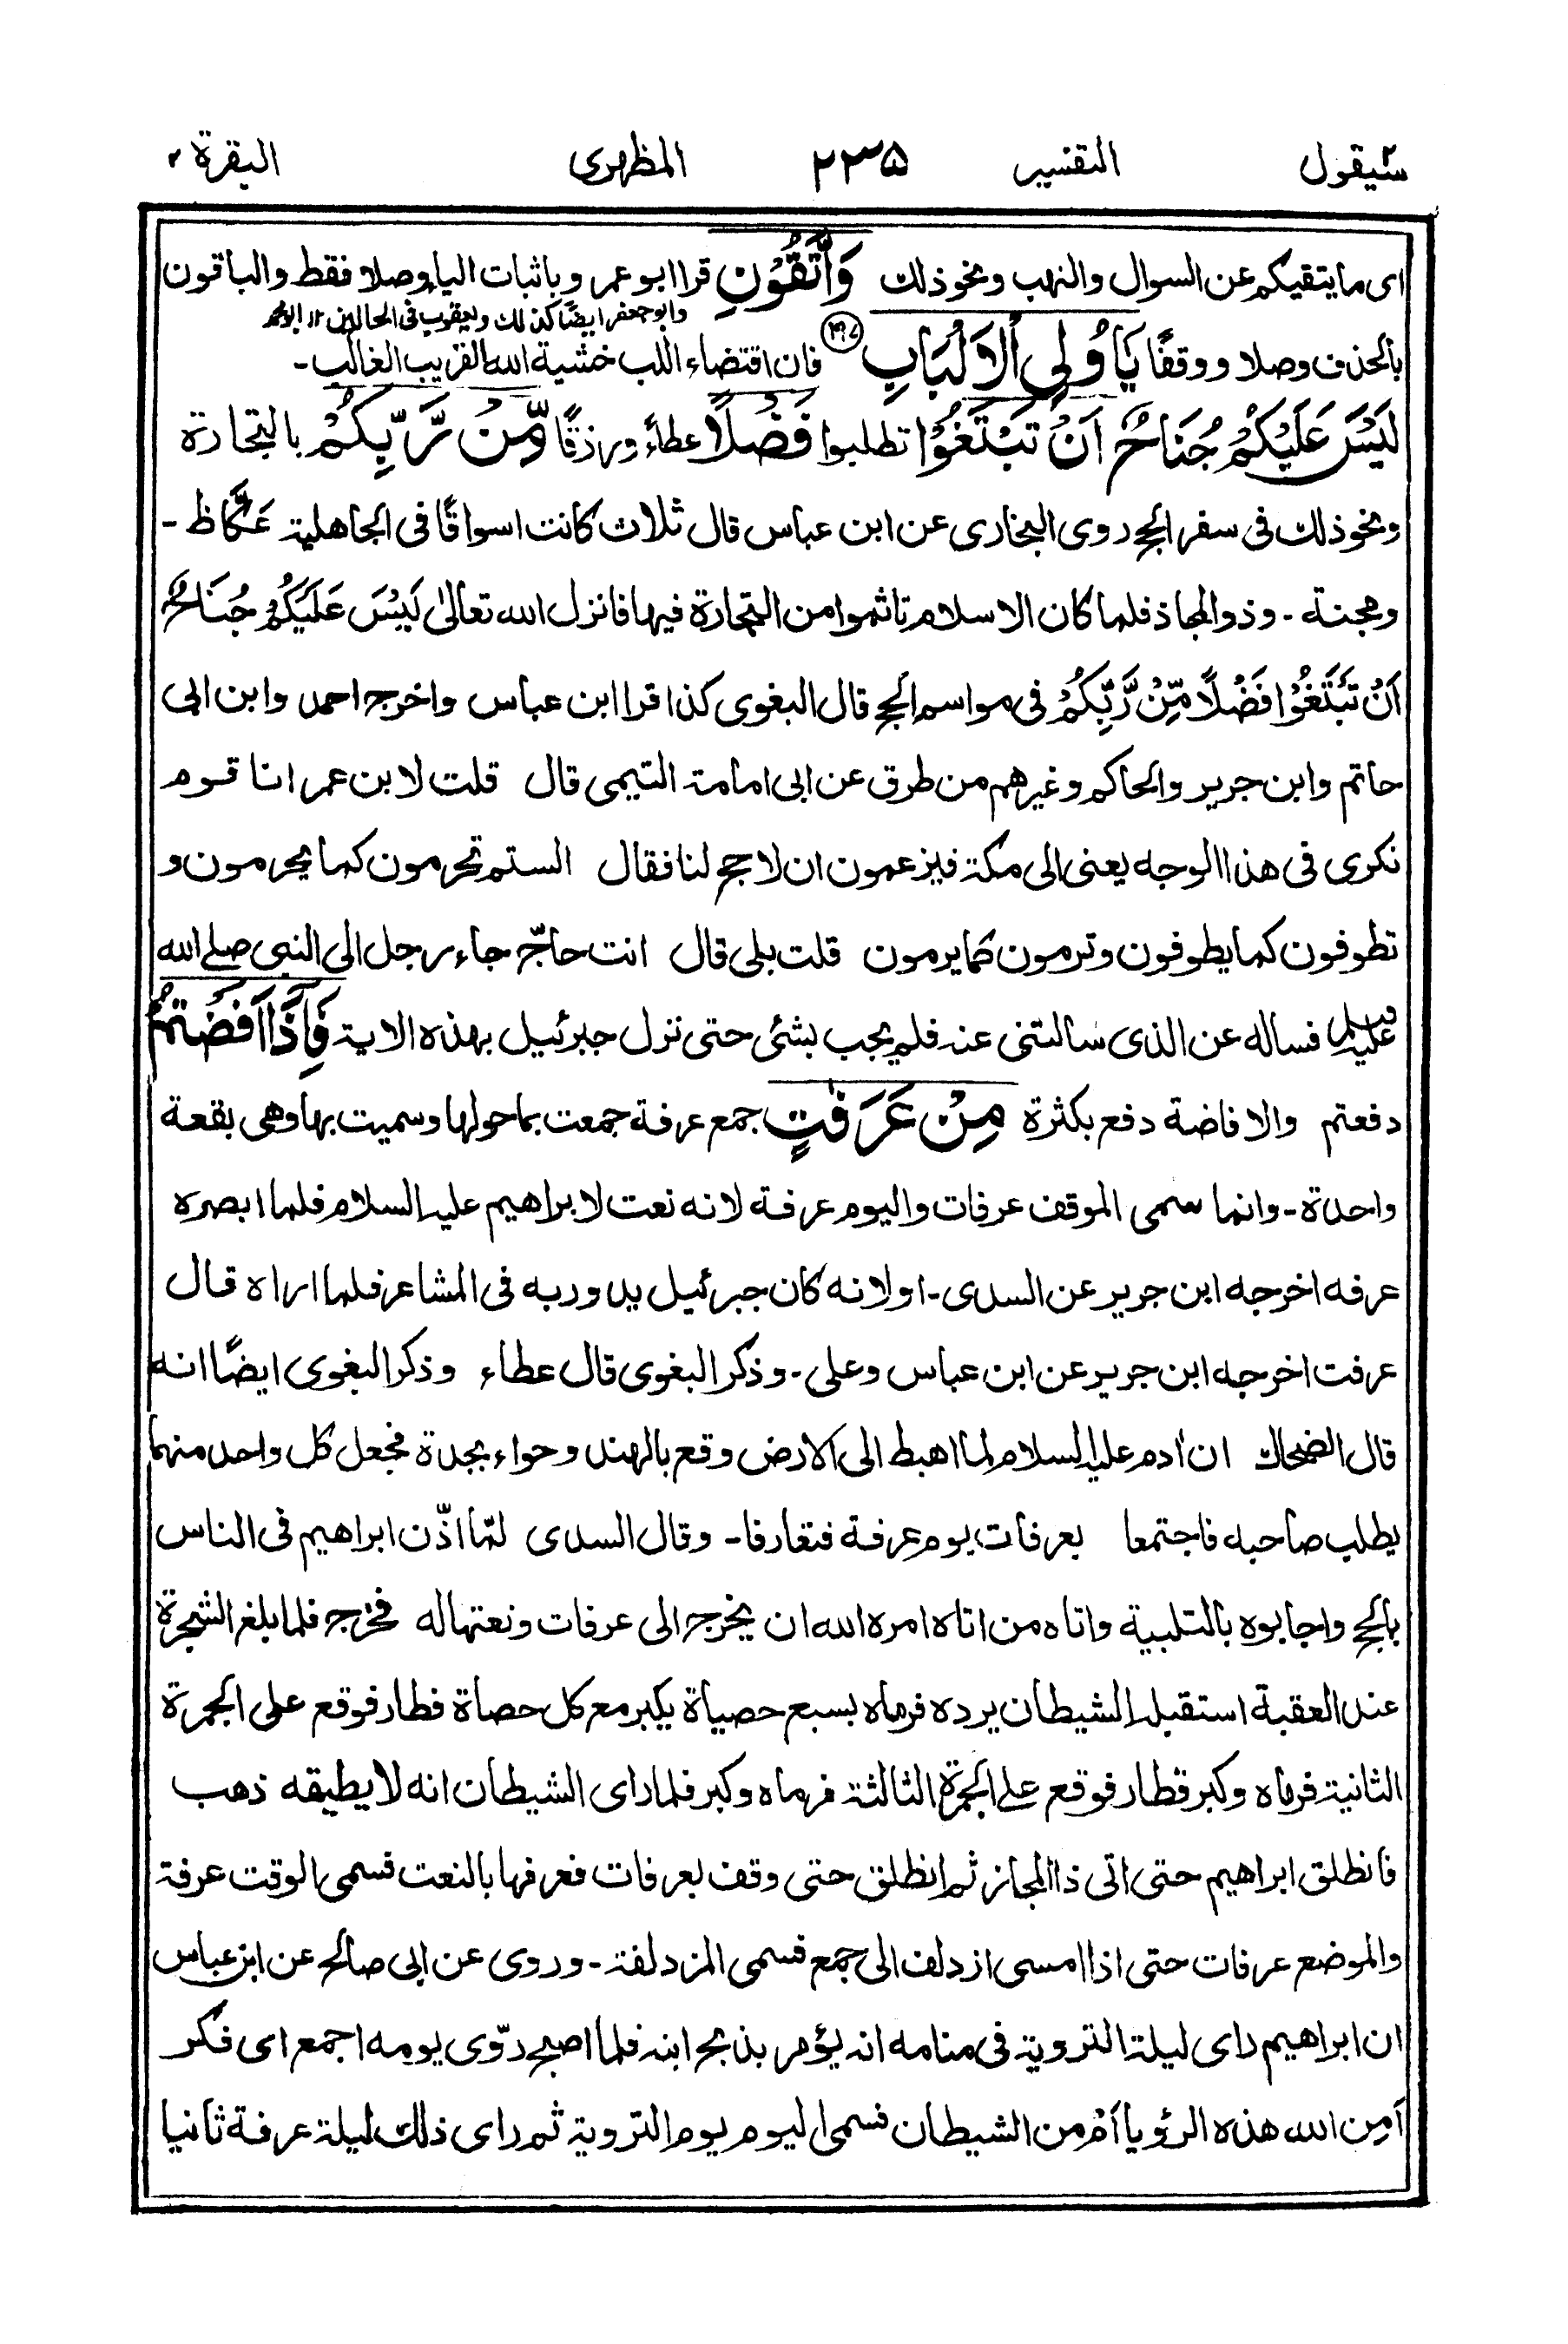 سيقول ٢ التفسير ٢٣٥ المظهرى البقرة ٢
اى ما يتقيكم عن السوال والنهب ونحو ذلك وَاتَّقُوْنِ قرا ابو عمر و باثبات الياء وصلا فقط والباقون
وابو جعفر ايضًا كذلك ويعقوب فى الحالين ١٢ ابو محمد
بالحذف وصلا ووقفًا يٰٓاُولِى الْاَلْبَابِ ١٩٧ فان اقتضاء اللب خشية الله القريب الغالب۔
لَيْسَ عَلَيْكُمْ جُنَاحٌ اَنْ تَبْتَغُوْا تطلبوا فَضْلًا عطاء ورزقًا مِّنْ رَّبِّكُمْ بالتجارة
ونحو ذلك فى سفر الحج روى البخارى عن ابن عباس قال ثلاث كانت اسواقًا فى الجاهلية عكّاظ۔
ومجنة۔ وذو المجاز فلما كان الاسلام تاثموا من التجارة فيها فانزل الله تعالىٰ لَيْسَ عَلَيْكُمْ جُنَاحٌ
اَنْ تَبْتَغُوْا فَضْلًا مِّنْ رَّبِّكُمْ فى مواسم الحج قال البغوى كذا قرا ابن عباس واخرج احمد وابن ابى
حاتم وابن جرير والحاكم وغيرهم من طرق عن ابى امامة التيمى قال قلت لابن عمر انا قوم
نكرى فى هذا الوجه يعنى الى مكة فيزعمون ان لا حج لنا فقال الستم تحرمون كما يحرمون و
تطوفون كما يطوفون وترمون كما يرمون قلت بلى قال انت حاجّ جاء رجل الى النبى صلے الله
عليه وسلم فساله عن الذى سالتنى عنه فلم يجب بشئ حتى نزل جبرئيل بهذه الاية فَاِذَآ اَفَضْتُمْ
دفعتم والافاضة دفع بكثرة مِنْ عَرَفٰتٍ جمع عرفة جمعت بما حولها وسميت بها وهى بقعة
واحدة۔ وانما سمى الموقف عرفات واليوم عرفة لانه نعت لابراهيم عليه السلام فلما ابصره
عرفه اخرجه ابن جرير عن السدى۔ اولانه كان جبرئيل يدور به فى المشاعر فلما اراه قال
عرفت اخرجه ابن جرير عن ابن عباس وعلى۔ وذكر البغوى قال عطاء وذكر البغوى ايضًا انه
قال الضحاك ان اٰدم عليه السلام لما اهبط الى الارض وقع بالهند وحواء بجدة فجعل كل واحد منهما
يطلب صاحبه فاجتمعا بعرفات يوم عرفة فتعارفا۔ وقال السدى لمّا اذّن ابراهيم فى الناس
بالحج واجابوه بالتلبية واتاه من اتاه امره الله ان يخرج الى عرفات ونعتها له فخرج فلما بلغ الشجرة
عند العقبة استقبله الشيطان يرده فرماه بسبع حصياة يكبر مع كل حصاة فطار فوقع على الجمرة
الثانية فرماه وكبر فطار فوقع على الجمرة الثالثة فرماه وكبر فلما راى الشيطان انه لا يطيقه ذهب
فانطلق ابراهيم حتى اتى ذا المجاز ثم انطلق حتى وقف بعرفات فعرفها بالنعت فسمى الوقت عرفة
والموضع عرفات حتى اذا امسى ازدلف الى جمع فسمى المزدلفة۔ وروى عن ابى صالح عن ابن عباس
ان ابراهيم راى ليلة التروية فى منامه انه يؤمر بذبح ابنه فلما اصبح روّى يومه اجمع اى فكر
اَمِن الله هذه الرؤيا اَمْ من الشيطان فسمى اليوم يوم التروية ثم راى ذلك ليلة عرفة ثانيا